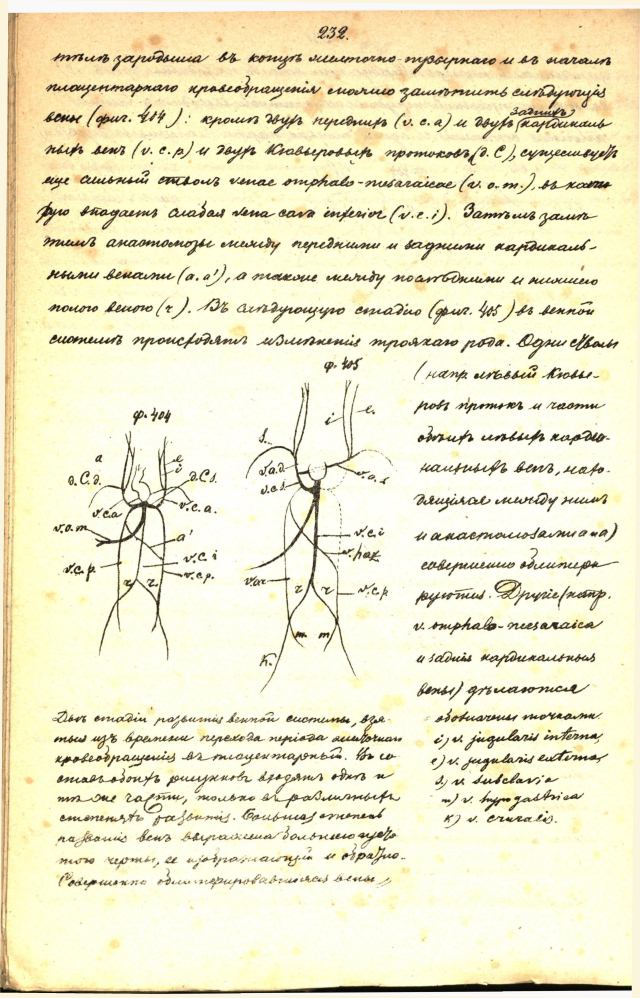 232.
тѣлѣ зародыша въ концѣ желточно-пузырнаго и въ началѣ
плацентарнаго кровеобращенія можно замѣтить слѣдующія
вены (фиг. 404): кромѣ двухъ переднихъ (v. c. a) и двухъ заднихъ кардиналь
ныхъ венъ (v. c. p) и двухъ Кювьеровыхъ протоковъ (d. C), существуетъ
еще сильный стволъ venae omphalo-mesaraicae (v. o. m.), въ кото
рую впадаетъ слабая vena cava inferior (v. c. i). Затѣмъ замѣ
тимъ анастомозы между передними и задними кардиналь-
ными венами (a. a'), а также между послѣдними и нижнею
полою веною (r). Въ слѣдующую стадію (фиг. 405) въ венной
системѣ происходятъ измѣненія троякаго рода. Одни стволы
(напр. лѣвый Кювье-
ровъ протокъ и части
обѣихъ лѣвыхъ кардi-
нальныхъ венъ, нахо-
дящіяся между нимъ
и анастомозами a и a)
совершенно облитери
руются. Другіе (напр.
v. omphalo-mesaraica
и заднія кардинальныя
вены) дѣлаются
ф. 404
a
d. C. d.
v. c. a
v. o. m
v. c. p.
e
i
d. C s.
v. c. a.
a'
v. c. i
v. c. p.
r
r
ф. 405
s.
v. a. d.
v. a. s
i
e.
v. a. s
v. c. i
v. hax
v. az
v. c. p
r
r
m
m
k.
Двѣ стадіи развитія венной системы, взя-
тыя изъ времени перехода періода желточнаго
кровеобращенія въ плацентарный. Въ со
ставъ обоихъ рисунковъ входятъ однѣ и
тѣ же части, только въ различныхъ
степеняхъ развитія. Большая степень
развитія венъ выражена большею густо
тою черты, ее изображающей и обратно.
Совершенно облитерировавшіяся вены
обозначены точками.
i) v. jugularis interna,
e) v. jugularis externa,
s) v. subclavia
m) v. hypogastrica
k) v. cruralis.